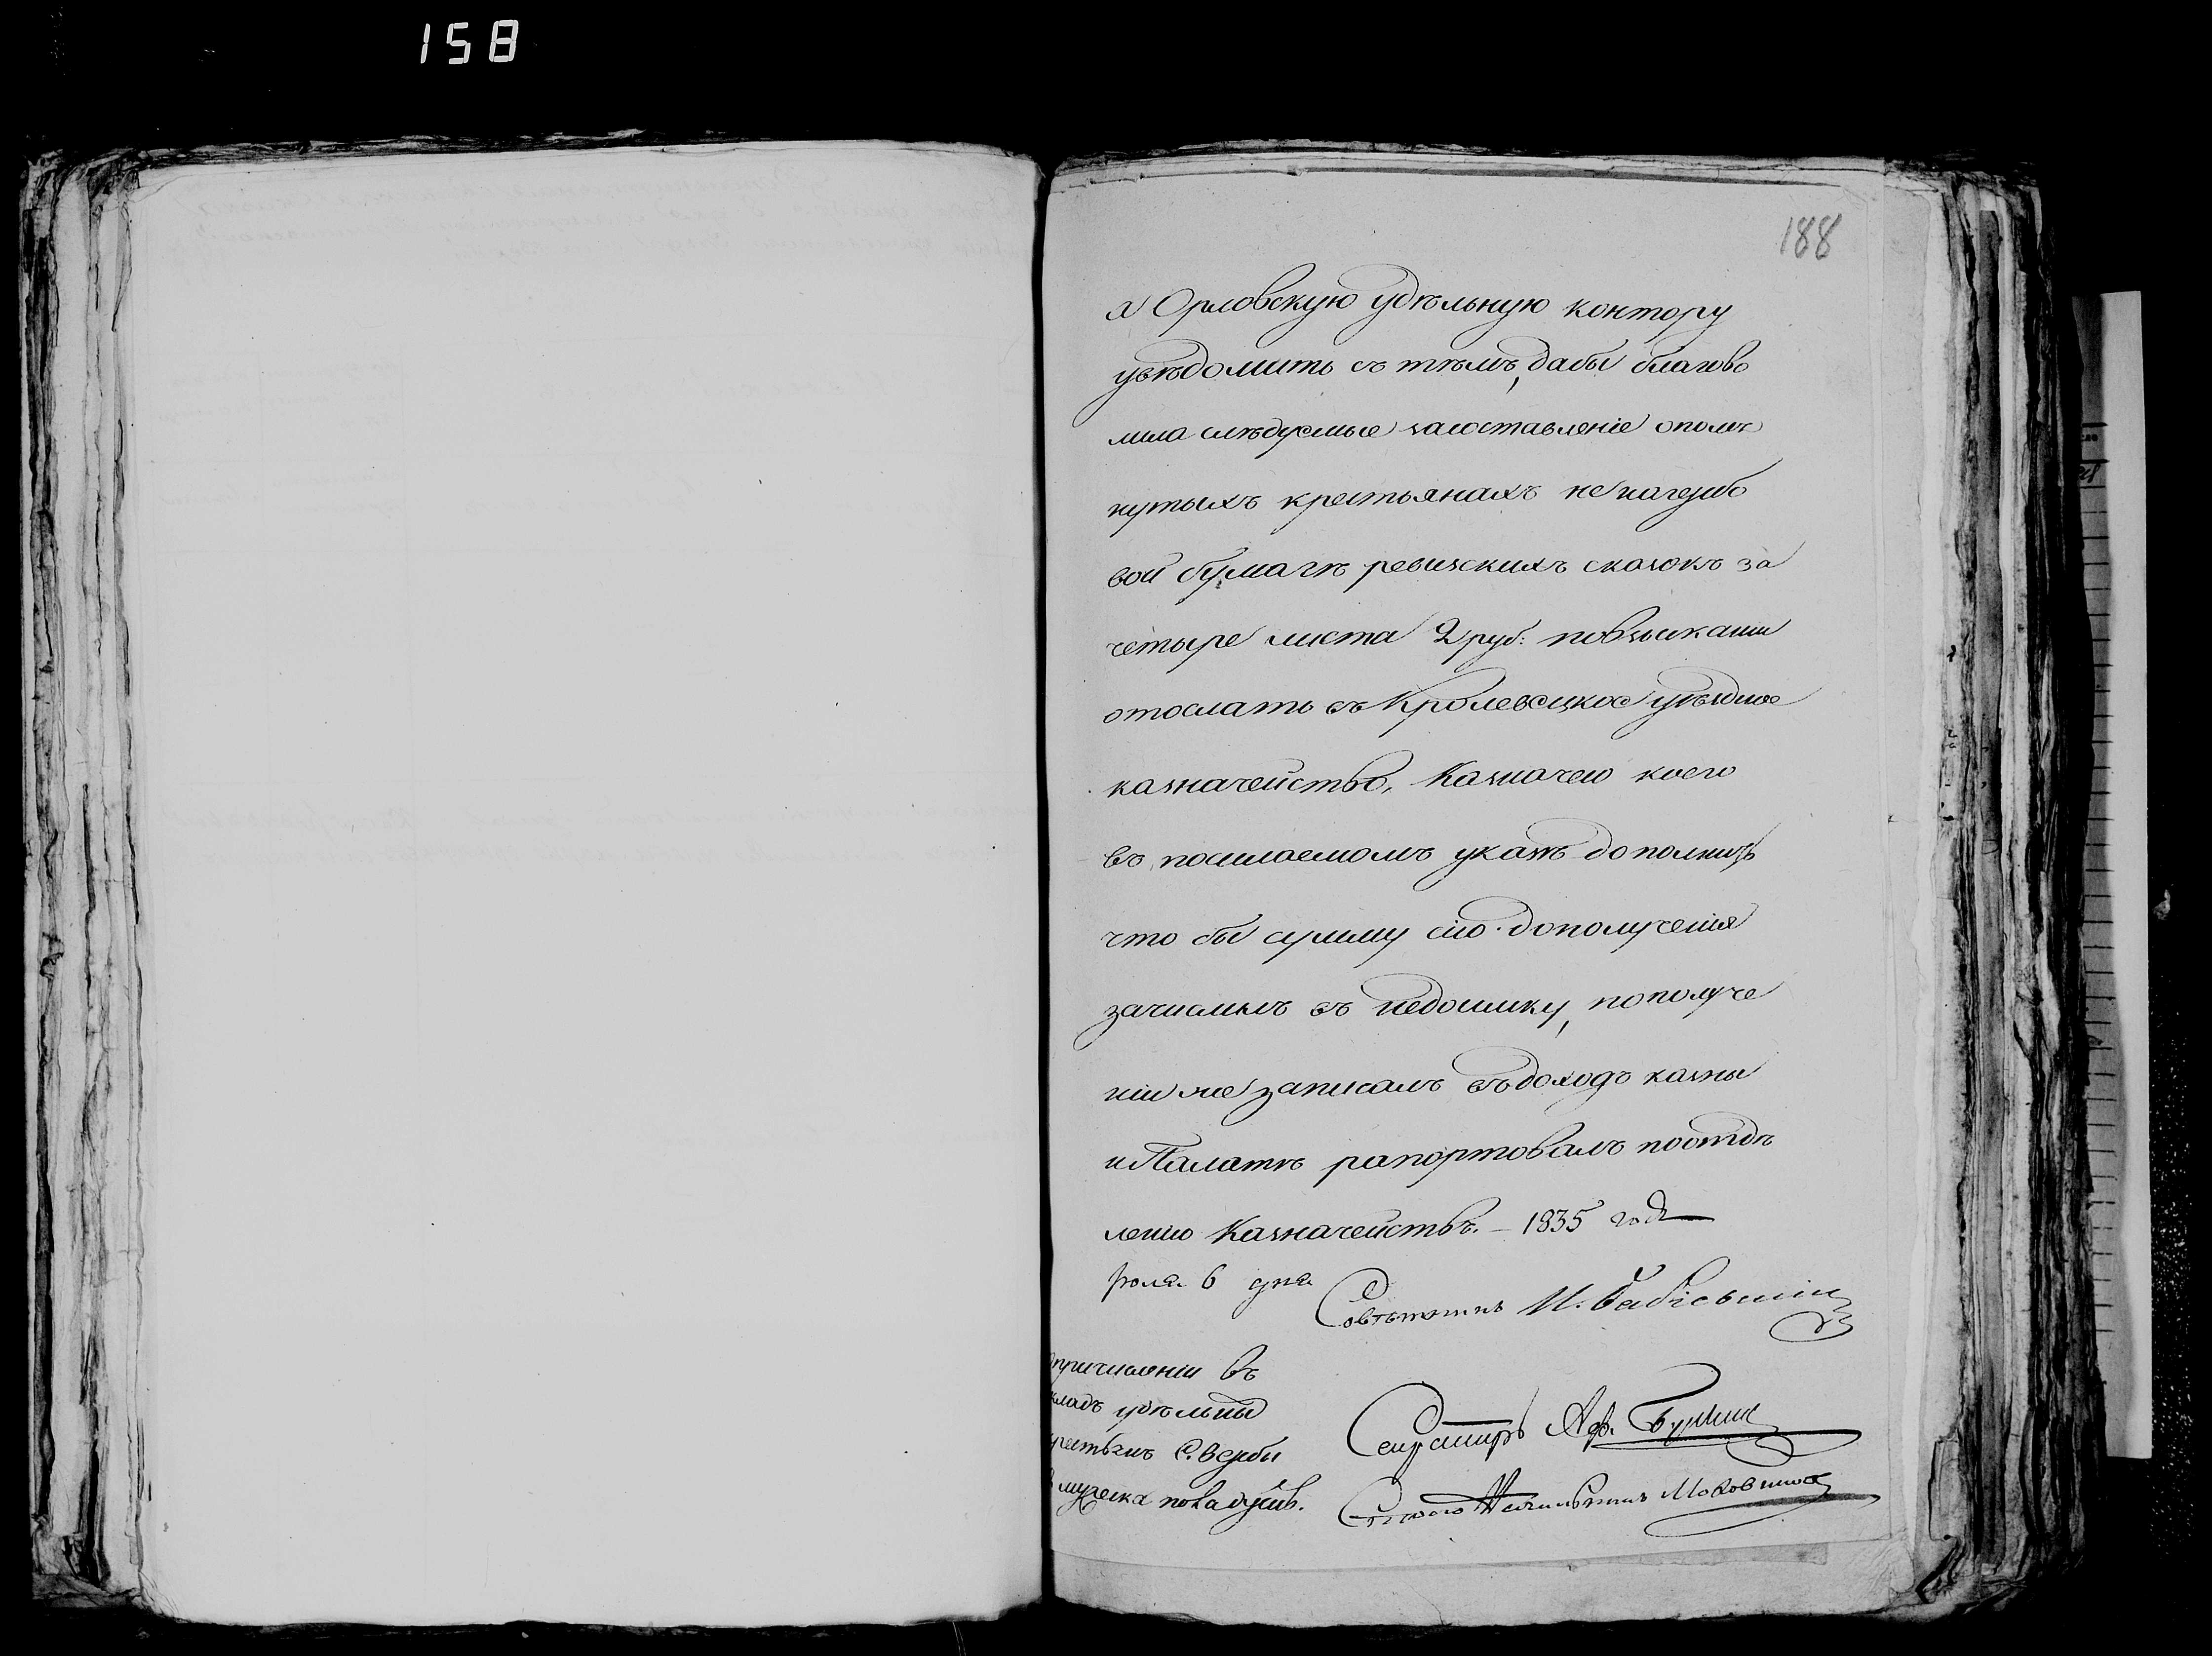 158
188
а Орловскую удѣльную контору
увѣдомить съ тѣмъ, дабы благово
лила слѣдуемые засоставленіе опомя
нутыхъ крестьянахъ негербо
вой бумагѣ ревизскихъ сказокъ за
четыре листа 2 руб: повзыскании
отослать въ Кролевецкое уѣздное
казначейство, Казначею коего
въ посылаемомъ указѣ дополнить
что бы сумму сію дополученія
зачислилъ въ недоимку, пополуче
ніи же записалъ въдоходъ казны
иПалатѣ рапортовалъ поотдѣ
ленію Казначействъ. – 1835 года
раля 6 дня
Совѣтникъ И.
причисленіи въ
кладъ удѣльны
рестьянъ С. Вербы
Секретарь Аф.
Столоначальникъ